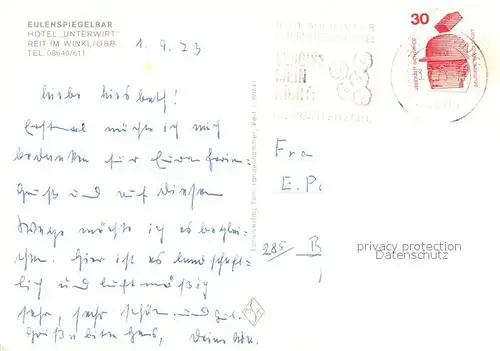 EULENSPIEGELBAR
HOTEL „UNTERWIRT"
REIT IM WINKL/OBB
TEL: 08640/611
1. 9. 73
30
Liebe Liesbeth!
Erstmal möchte ich mich
bedanken für Euren Ferien-
Gruß und auf diesem
Wege möchte ich es beglei-
chen. Hier ist es landschaft-
lich und luftmäßig
sehr, sehr schön und gut.
Grüße bitte
Deine
Frau
E. P.
285/ B
privacy protection
Datenschutz